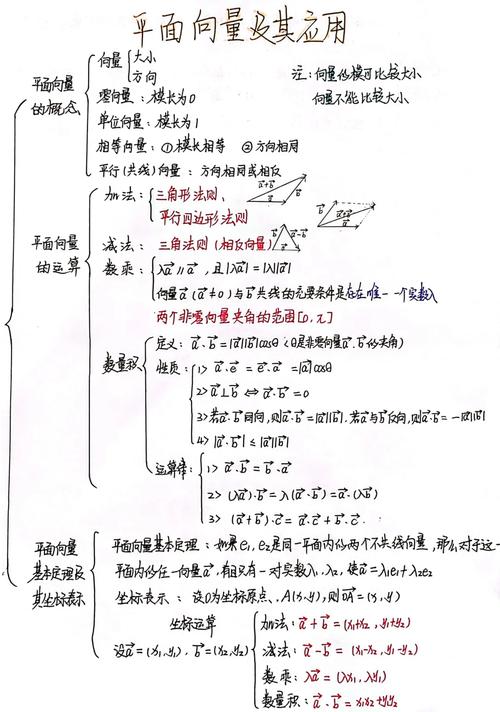 平面向量及其应用
平面向量的概念
向量
大小
方向
零向量：模长为0
单位向量：模长为1
相等向量：①模长相等 ②方向相同
平行(共线)向量：方向相同或相反
注：向量的模可比较大小
向量不能比较大小
平面向量的运算
加法：
三角形法则、
平行四边形法则
a⃗+b⃗ b⃗ a⃗
b⃗ a⃗+b⃗ a⃗
减法：三角法则(相反向量)
b⃗ a⃗-b⃗ a⃗
数乘：
λa⃗∥a⃗，且|λa⃗|=|λ||a⃗|
向量a⃗(a⃗≠0)与b⃗共线的充要条件是存在唯一一个实数λ
两个非零向量夹角的范围[0,π]
数量积
定义：a⃗·b⃗=|a⃗||b⃗|cosθ (θ是非零向量a⃗.b⃗的夹角)
性质：
1> a⃗·e⃗=e⃗·a⃗=|a⃗|cosθ
2> a⃗⊥b⃗ ⇔ a⃗·b⃗=0
3> 若a⃗.b⃗同向，则a⃗·b⃗=|a⃗||b⃗|，若a⃗与b⃗反向，则a⃗·b⃗=-|a⃗||b⃗|
4> |a⃗·b⃗|≤|a⃗||b⃗|
运算律：
1> a⃗·b⃗=b⃗·a⃗
2> (λa⃗)·b⃗=λ(a⃗·b⃗)=a⃗·(λb⃗)
3> (a⃗+b⃗)·c⃗=a⃗·c⃗+b⃗·c⃗.
平面向量基本定理及其坐标表示
平面向量基本定理：如果e₁,e₂是同一平面内的两个不共线向量，那么对于这一
平面内的任一向量a⃗，有且只有一对实数λ₁,λ₂,使a⃗=λ₁e₁+λ₂e₂
坐标表示：设O为坐标原点、A(x,y),则OA⃗=(x,y)
坐标运算
设a⃗=(x₁,y₁), b⃗=(x₂,y₂)
加法：a⃗+b⃗=(x₁+x₂,y₁+y₂)
减法：a⃗-b⃗=(x₁-x₂,y₁-y₂)
数乘：λa⃗=(λx₁,λy₁)
数量积：a⃗·b⃗=x₁x₂+y₁y₂